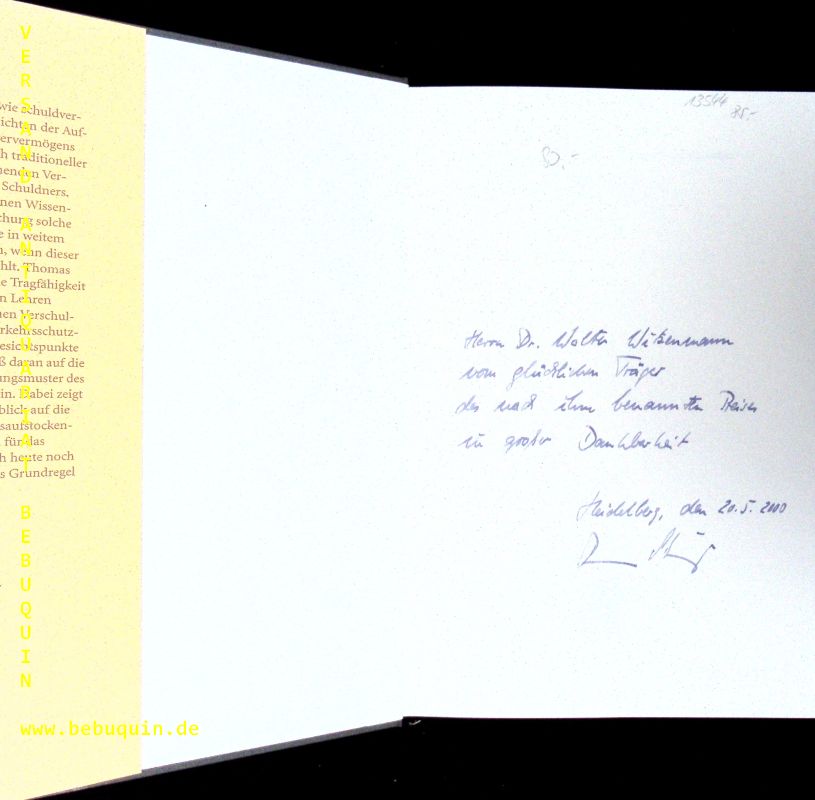 wie schuldver-
ichten der Auf-
ervermögens
h traditioneller
enden Ver-
Schuldners.
nen Wissen-
chung solche
e in weitem
n, wenn dieser
hlt. Thomas
e Tragfähigkeit
n Lehren
en Verschul-
rkehrsschutz-
esichtspunkte
ß daran auf die
ungsmuster des
in. Dabei zeigt
blick auf die
saufstocken-
für das
h heute noch
s Grundregel
VERSANDANTIQUARIAT BEBUQUIN
www.bebuquin.de
13544 85.-
80.-
Herrn Dr. Walter Witzenmann
vom glücklichen Träger
des nach ihm benannten Preises
in großer Dankbarkeit
Heidelberg, den 20.5. 2000